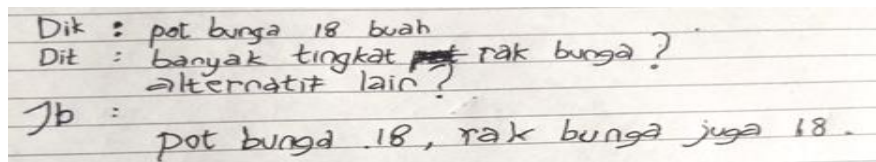 Dik : pot bunga 18 buah
Dit : banyak tingkat rak bunga?
alternatif lain?
Jb :
pot bunga 18, rak bunga juga 18.